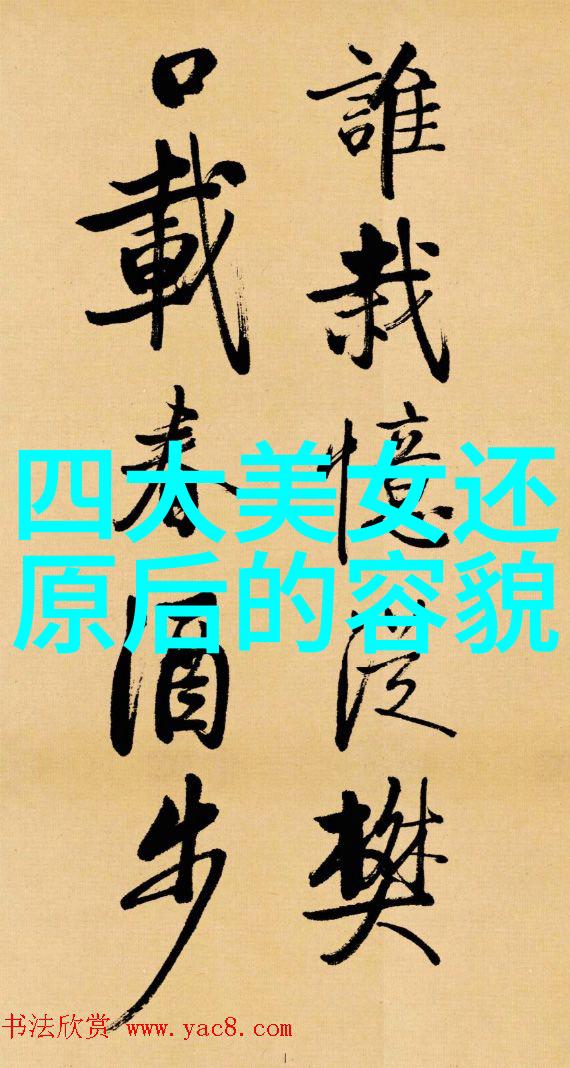 誰栽憶後樊
口載春酒步
四大美女还
原后的容貌
书法欣赏 www.yac8.com